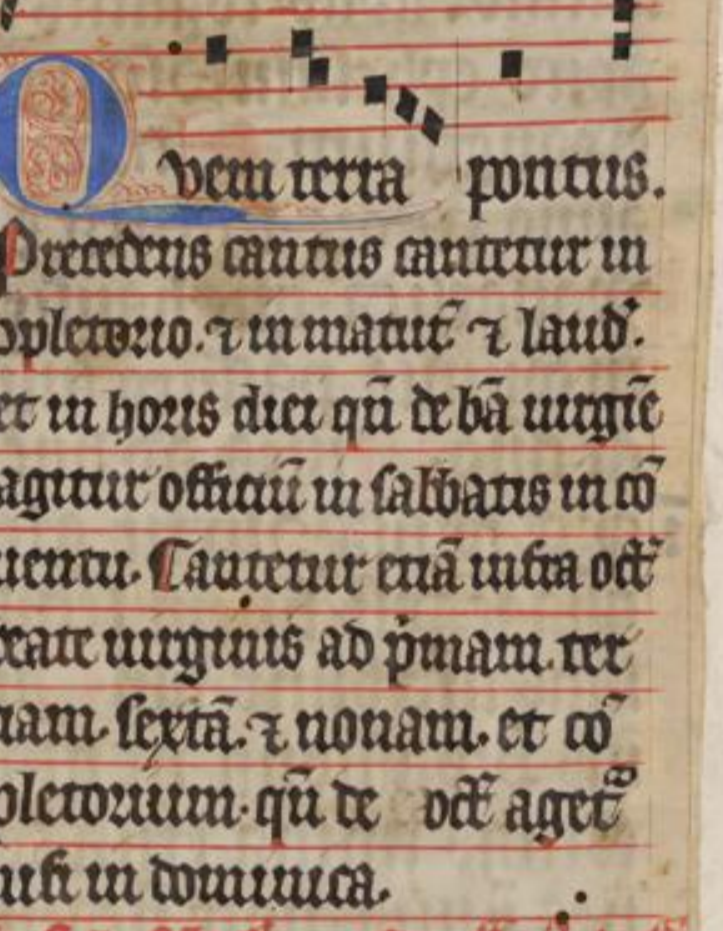 Quem terra pontus.
Precedens cantus cantetur in
pletorio. ⁊ in matut̄ ⁊ laud̄.
et in horis diei qn̄ de bā uirgīe
agitur officiū in sabbatis in cō
uentu. Cantetur etiā infra oct̄
beate uirginis ad pͥmam. ter
tiam. sextā. ⁊ nonam. et cō
pletorium. qn̄ de oct̄ aget᷑
nisi in dominica.